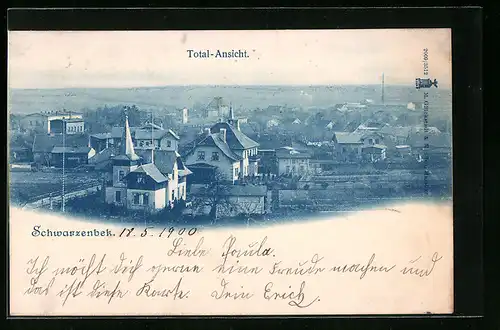 Total-Ansicht.
Schwarzenbek. 18.5.1900
Liebe Paula.
Ich möcht dich gerne eine Freude machen, und
das ist diese Karte. Dein Erich.